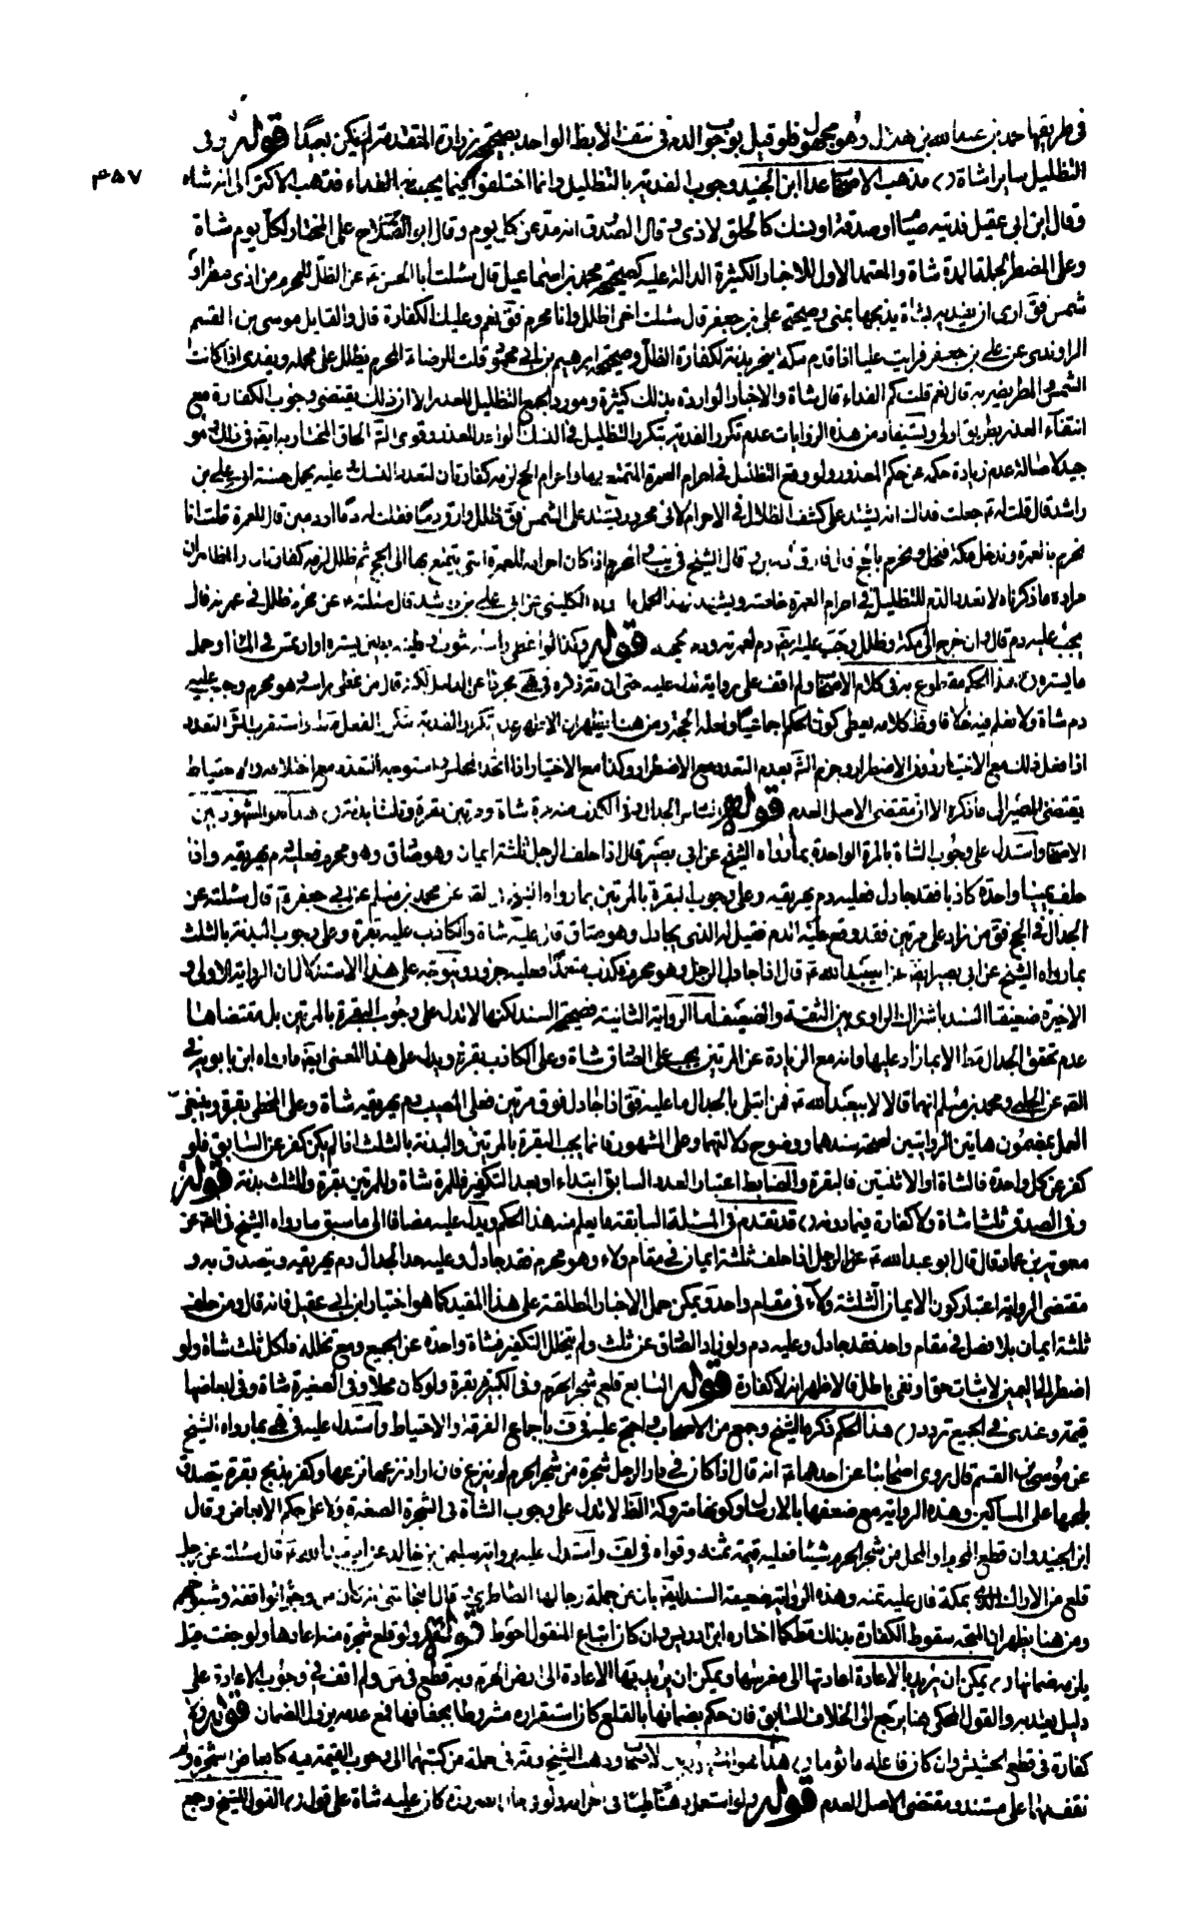 في طريقها احمد بن عبدالله بن هذيل وهو مجهول فلو قيل بوجوب الدم في نتف الابط الواحد بصحيحة زرارة المتقدمة لم يكن بعيدا قوله وفي
٣٥٧
التظليل سايرا شاة مذهب الاصحاب عدا ابن الجنيد وجوب الفدية بالتظليل وانما اختلفوا فيما يجب به الفداء فذهب الاكثر الى انه شاة
وقال ابن ابي عقيل فديته صيام او صدقة او نسك كالحلق لاذى وقال الصدوق انه مد عن كل يوم وقال ابو الصلاح على المختار لكل يوم شاة
وعلى المضطر لجملة المدة شاة والمعتمد الاول للاخبار الكثيرة الدالة عليه كصحيحة محمد بن اسماعيل قال سئلت ابا الحسن عن الظل للمحرم من اذى مطر او
شمس فق ارى ان يفديه بشاة يذبحها بمنى وصحيحة على بن جعفر قال سئلت اخي اظلل وانا محرم فق نعم وعليك الكفارة قال والقايل موسى بن القسم
الراوي عن علي بن جعفر فرايت عليا اذا قدم مكة ينحر بدنة لكفارة الظل وصحيحة ابرهيم بن ابي محمود قلت للرضا المحرم يظلل على محمله ويفدي اذا كانت
الشمس والمطر يضر به قال نعم قلت كم الفداء قال شاة والاخبار الواردة بذلك كثيرة ومورد الجميع التظليل للعذر الا ان ذلك يقتضي وجوب الكفارة مع
انتفاء العذر بطريق اولى ويستفاد من هذه الروايات عدم تكرر الفدية بتكرر التظليل في النسك الواحد للعذر وقوى الش الحاق المختار به ايض في ذلك وهو
جيد لاصالة عدم زيادة حكمه عن حكم المعذور ولو وقع التظليل في احرام العمرة المتمتع بها واحرام الحج لزمه كفارتان لتعدد النسك وعليه يحمل حسنة ابي علي بن
راشد قال قلت له جعلت فداك انه يشتد على كشف الظلال في الاحرام لاني محرور يشتد على الشمس فق ظلل وارق دما فقلت له دما او دمين قال للعمرة قلت انا
نحرم بالعمرة وندخل مكة فنحل ونحرم بالحج قال فارق دمين وقال الشيخ في يب المحرم اذا كان احرامه للعمرة التي يتمتع بها الى الحج ثم ظلل لزمه كفارتان والظاهر ان
مراده ما ذكرناه لا تعدد الدم للتظليل في احرام العمرة خاصة ويشهد لهذا الحمل ما رواه الكليني عن ابي علي بن راشد قال سئلته عن محرم ظلل في عمرته قال
يجب عليه دم قال وان خرج الى مكة وظلل وجب عليه ايض دم لعمرته ودم لحجته قوله وكذا لو غطى راسه بثوب او طينه بطين يستره او ارتمس في الماء او حمل
ما يستره هذا الحكم مقطوع به في كلام الاصحاب ولم اقف على رواية تدل عليه
دم شاة ولا نعلم فيه خلافا وظ كلامه يعطي كون الحكم اجماعيا ولعله الحجة ومن هنا يظهر ان الاظهر عدم تكرر الفدية بتكرر الفعل
اذا فعل ذلك مع الاختيار دون الاضطرار وجزم الش بعدم التعدد مع الاضطرار وكذا مع الاختيار اذا اتحد المجلس واستوجه التعدد مع اختلافه والاحتياط
يقتضي المصير الى ما ذكره الا ان مقتضى الاصل العدم قوله السادس الجدال وفي الكذب منه مرة شاة ومرتين بقرة وثلثا بدنة هذا هو المشهور بين
الاصحاب واستدل على وجوب الشاة بالمرة الواحدة بما رواه الشيخ عن ابي بصير قال اذا حلف الرجل ثلثة ايمان وهو صادق وهو محرم فعليه دم يهريقه واذا
حلف يمينا واحدة كاذبا فقد جادل فعليه دم يهريقه وعلى وجوب البقرة بالمرتين بما رواه عن محمد بن مسلم عن ابي جعفر قال سئلته عن
الجدال في الحج فق من زاد على مرتين فقد وقع عليه الدم فقيل له الذي يجادل وهو صادق قال عليه شاة والكاذب عليه بقرة وعلى وجوب البدنة بالثلث
بما رواه الشيخ عن ابي بصير ايض عن ابيعبدالله قال اذا جادل الرجل وهو محرم فكذب متعمدا فعليه جزور ويتوجه على هذا الاستدلال ان الرواية الاولى و
الاخيرة ضعيفتا السند باشتراك الراوي بين الثقة والضعيف اما الرواية الثانية فصحيحة السند لكنها لا تدل على وجوب البقرة بالمرتين بل مقتضاها
عدم تحقق الجدال الا بما زاد عليها وانه مع الزيادة عن المرتين يجب على الصادق شاة وعلى الكاذب بقرة ويدل على هذا المعنى ايض ما رواه ابن بابويه في
الصحيح عن الحلبي ومحمد بن مسلم انهما قالا لابيعبدالله فمن ابتلى بالجدال ما عليه فق اذا جادل فوق مرتين فعلى المصيب دم يهريقه شاة وعلى المخطئ بقرة وينبغي
العمل بمضمون هاتين الروايتين لصحة سندهما ووضوح دلالتهما وعلى المشهور فانما يجب البقرة بالمرتين والبدنة بالثلث اذا لم يكن كفر عن السابق فلو
كفر عن كل واحدة فالشاة او الاثنتين فالبقرة والضابط اعتبار العدد السابق ابتداء او بعد التكفير فللمرة شاة وللمرتين بقرة وللثلث بدنة قوله
وفي الصدق ثلثا شاة ولا كفارة فيما دونه قد تقدم في المسئلة السابقة ما يعلم منه هذا الحكم ويدل عليه مضافا الى ما سبق ما رواه الشيخ في الصحيح عن
معوية بن عمار قال قال ابو عبدالله ان الرجل اذا حلف ثلثة ايمان في مقام ولاء وهو محرم فقد جادل وعليه حد الجدال دم يهريقه ويتصدق به و
مقتضى الرواية اعتبار كون الايمان الثلثة ولاء في مقام واحد ويمكن حمل الاخبار المطلقة على هذا المقيد كما هو اختيار ابن ابي عقيل فانه قال ومن حلف
ثلثة ايمان بلا فصل في مقام واحد فقد جادل وعليه دم ولو زاد الصادق عن ثلث ولم يتخلل التكفير فشاة واحدة عن الجميع ومع تخلله فلكل ثلث شاة ولو
اضطر الى اليمين لاثبات حق او نفي باطل فالاظهر انه لا كفارة قوله السابع قلع شجر الحرم وفي الكبيرة بقرة ولو كان محلا وفي الصغيرة شاة وفي ابعاضها
قيمة وعندي في الجميع تردد هذا الحكم ذكره الشيخ وجمع من الاصحاب واحتج عليه في ف باجماع الفرقة والاحتياط واستدل عليه في هى بما رواه الشيخ
عن موسى بن القسم قال روى اصحابنا عن احدهما انه قال اذا كان في دار الرجل شجرة من شجر الحرم لم ينزع فان اراد نزعها نزعها وكفر بذبح بقرة يتصدق
بلحمها على المساكين وهذه الرواية مع ضعفها بالارسال وكونها متروكة الظ لا تدل على وجوب الشاة في الشجرة الصغيرة ولا على حكم الابعاض وقال
ابن الجنيد وان قطع المحرم او المحل من شجر الحرم شيئا فعليه قيمة ثمنه وقواه في لف واستدل عليه برواية سليمن بن خالد عن ابيعبدالله قال سئلته عن رجل
قلع من الاراك الذي بمكة قال عليه ثمنه وهذه الرواية ضعيفة السند ايض بان من جملة رجالها الطاطري قال النجاشي انه كان من وجوه الواقفة وشيوخهم
ومن هنا يظهر ان المتجه سقوط الكفارة بذلك مطلقا كما اختاره ابن ادريس وان كان اتباع المنقول احوط قوله ولو قلع شجرة منه اعادها ولو جفت قيل
يلزمه ضمانها يمكن ان يريد بالاعادة اعادتها الى مغرسها ويمكن ان يريد بها الاعادة الى ارض الحرم وبه قطع في س ولم اقف في وجوب الاعادة على
دليل يعتد به والقول المحكي هنا يرجع الى الخلاف السابق فان حكم بضمانها بالقلع كان استقراره مشروطا بجفافها فمع عدمه يزول الضمان قوله ولا
كفارة في قطع الحشيش وان كان فاعله ماثوما هذا هو المشهور بين الاصحاب وذهب الشيخ ره في جملة من كتبه الى وجوب القيمة فيه كابعاض الشجرة ولم
نقف لهما على مستند ومقتضى الاصل العدم قوله ولو استعمل دهنا طيبا في احرامه ولو في حال الضرورة كان عليه شاة على قول القول للشيخ وجمع